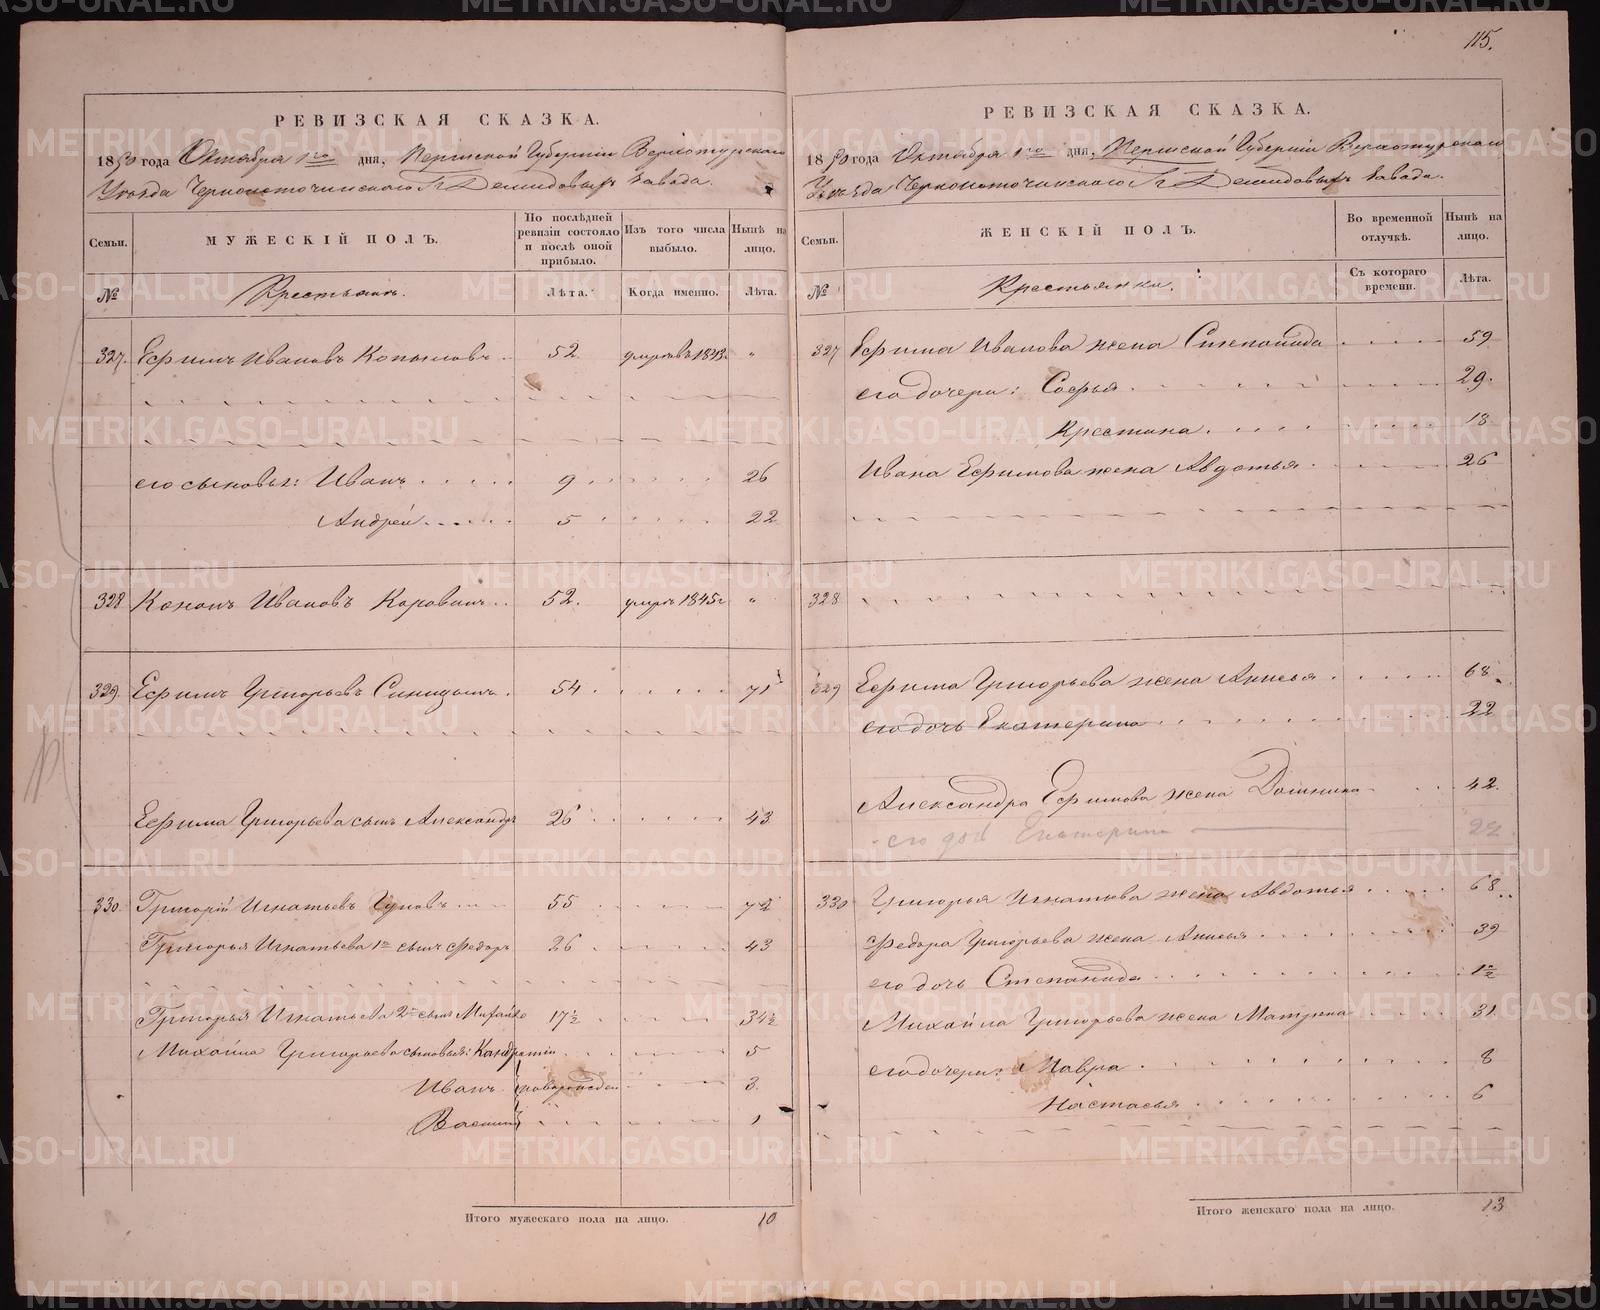 115.
РЕВИЗСКАЯ СКАЗКА.
1850 года Октября 1го дня, Пермской Губерніи Верхотурскаго
Уѣзда Черноисточинскаго Гг Демидовыхъ Завода.
Семьи.
МУЖЕСКІЙ ПОЛЪ.
По послѣдней ревизіи состояло и послѣ оной прибыло.
Изъ того числа выбыло.
Нынѣ на лицо.
№
Крестьяне.
Лѣта.
Когда именно.
Лѣта.
327. Ефимъ Ивановъ Копыловъ 52. умеръ въ 1843. "
его сыновья: Иванъ 9 26
Андрей 5 22
328 Кононъ Ивановъ 52. умеръ 1845г "
329. Ефимъ Григорьевъ Синицынъ. 54 71
Ефима Григорьева сынъ Александръ 26 43
330. Григорій Игнатьевъ 55 72
Григорья Игнатьева 1й сынъ Федоръ 26 43
Григорья Игнатьева 2й сынъ Михайло 17½ 34½
Михайла Григорьева сыновья: Кондратій 5
Иванъ новорожден 3.
Василій 1
Итого мужескаго пола на лицо. 10
РЕВИЗСКАЯ СКАЗКА.
1850 года Октября 1го дня, Пермской Губерніи Верхотурскаго
Уѣзда Черноисточинскаго Гг Демидовыхъ Завода.
Семьи.
ЖЕНСКІЙ ПОЛЪ.
Во временной отлучкѣ.
Нынѣ на лицо.
№
Крестьянки.
Съ котораго времени.
Лѣта.
327 Ефима Иванова жена Степонида 59
его дочери: Софья 29.
Крестина 13
Ивана Ефимова жена Авдотья 26
328
329 Ефима Григорьева жена Анисья 68
его дочь Екатерина 22
Александра Ефимова жена Домника 42.
его доч Екатерина 22
330 Григорья Игнатьева жена Авдотья 68
Федора Григорьева жена Анисья 39
его дочь Степонида ½
Михайла Григорьева жена Матрена 31
его дочери: Мавра 8
Настасья 6
Итого женскаго пола на лицо. 13
METRIKI.GASO-URAL.RU